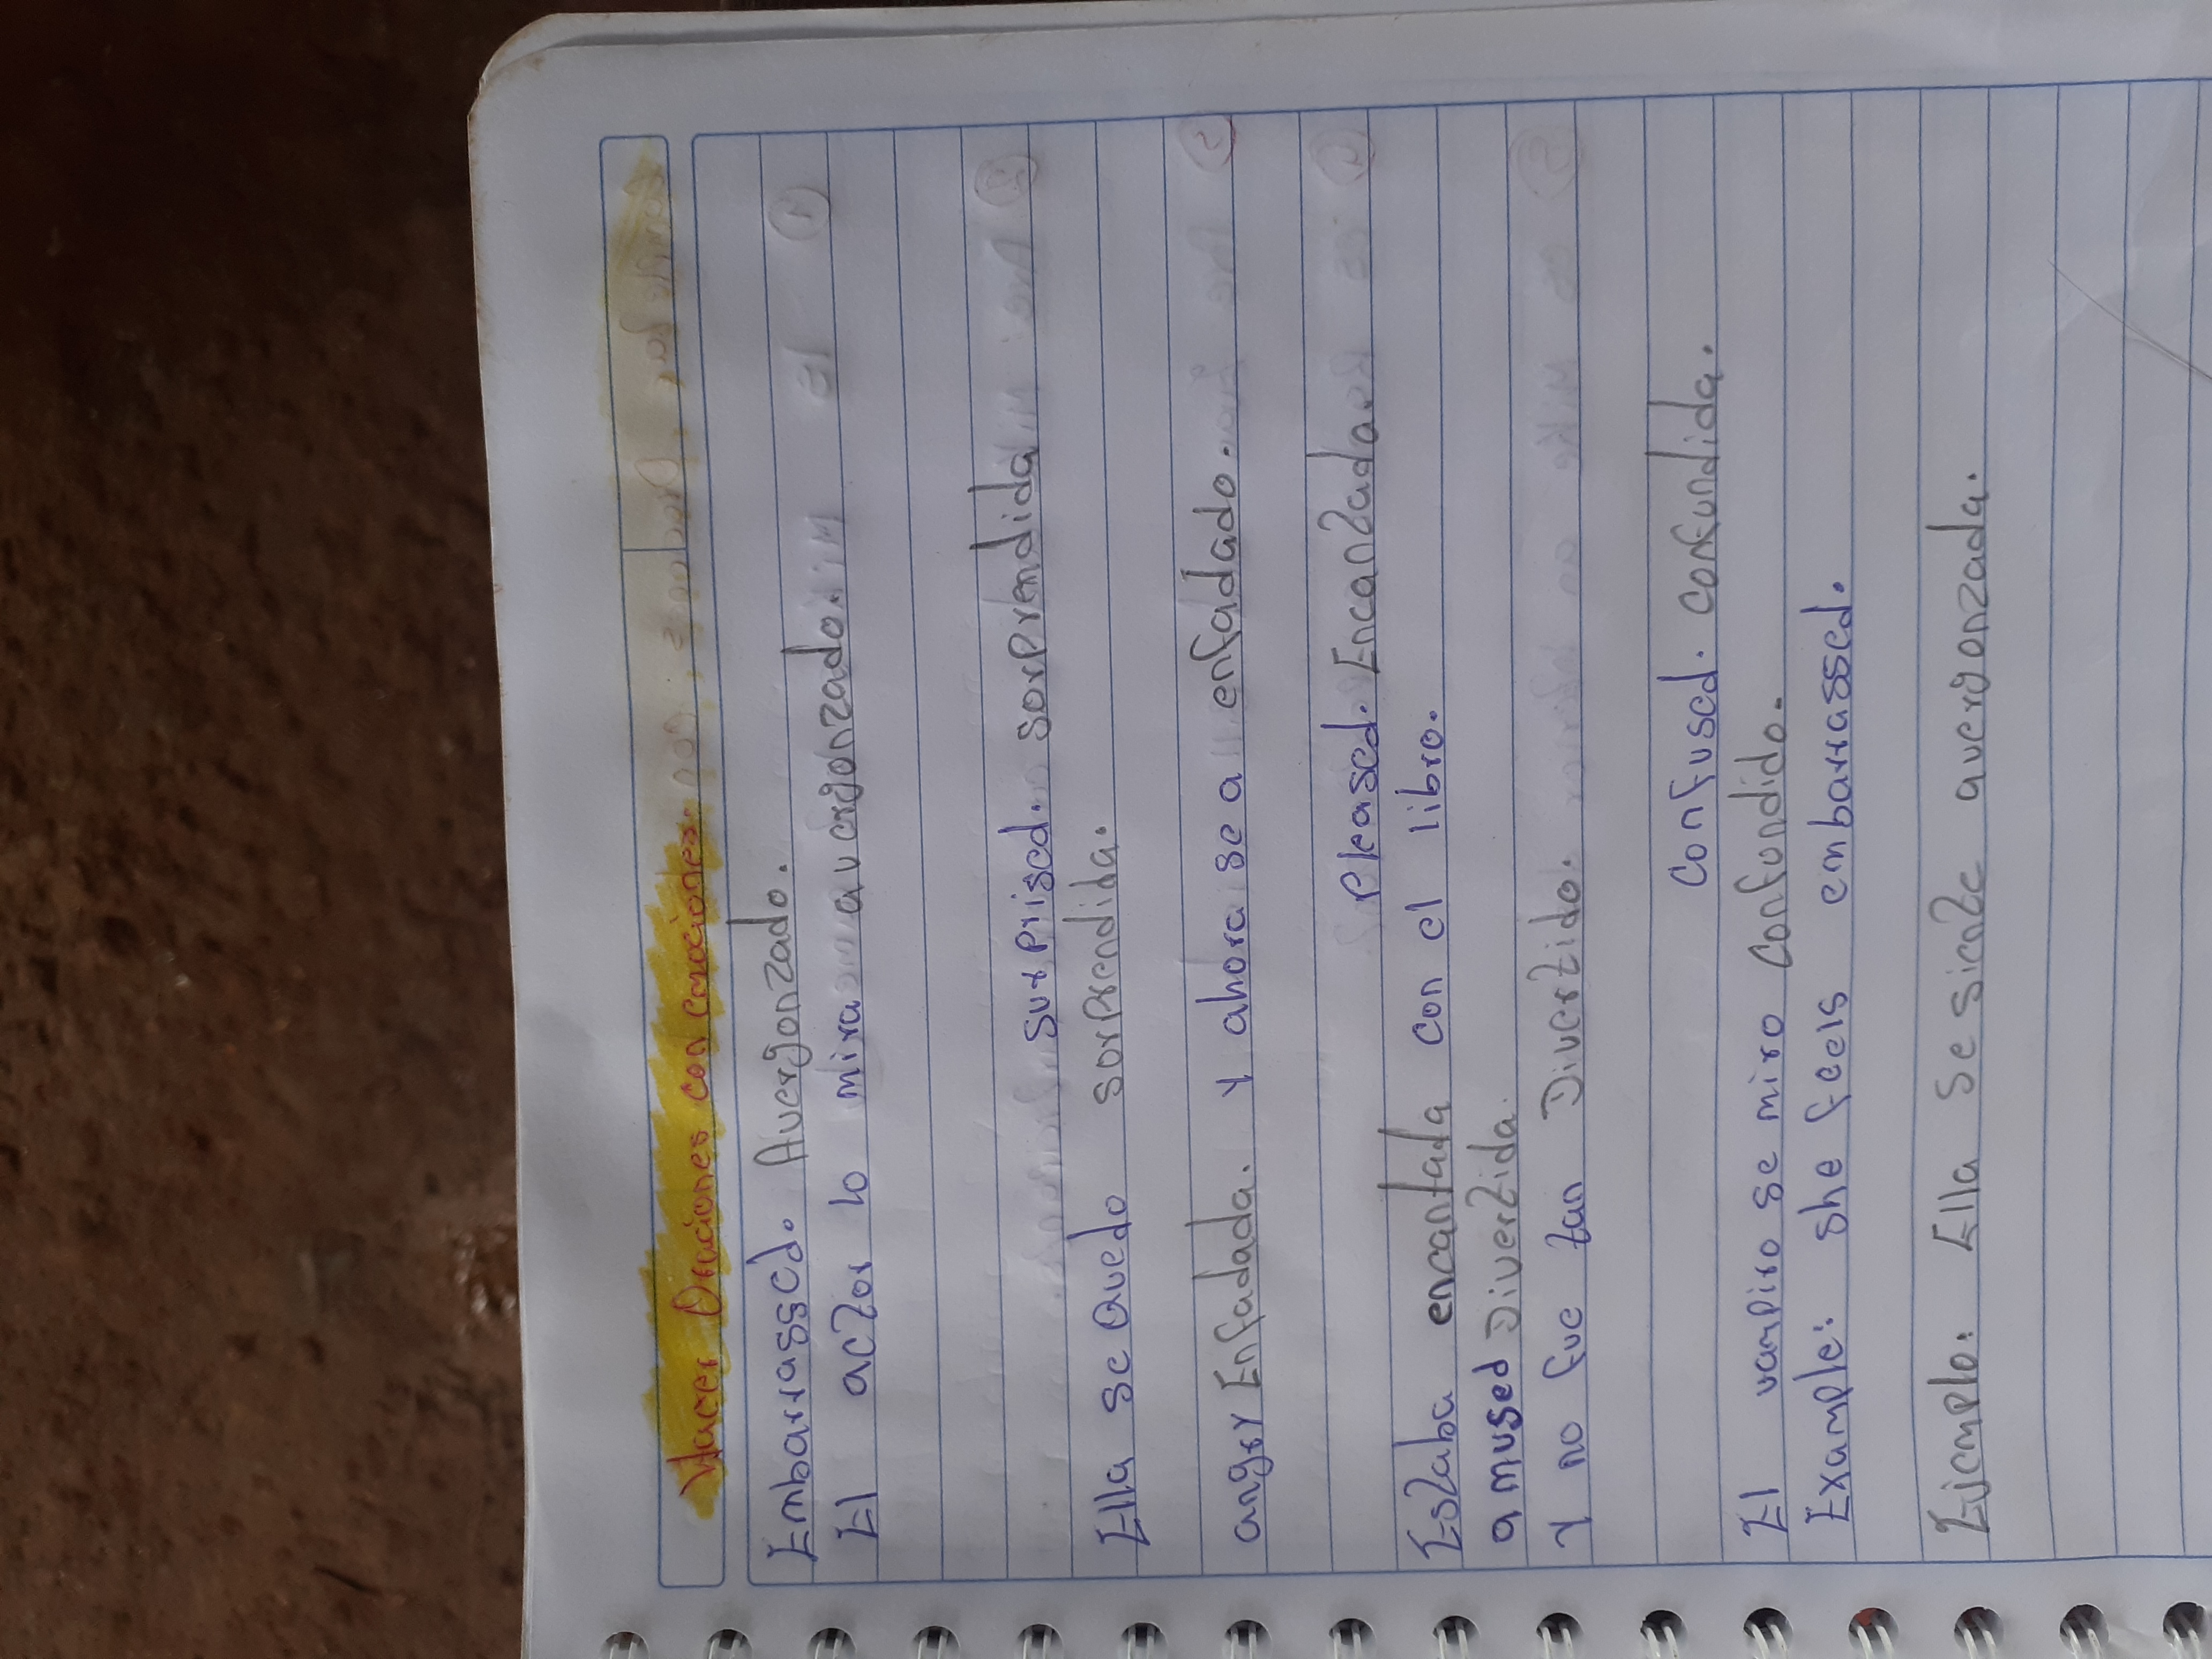 Hacer Oraciones con emociones.
Embarrassed. Avergonzado.
El actor lo mira avergonzado.
surprised. sorprendida
Ella se Quedo sorprendida.
angry Enfadada. y ahora se a enfadado.
Pleased. Encantada
Estaba encantada con el libro.
amused Divertida.
y no fue tan Divertido.
Confused. confundida.
El vampiro se miro confundido.
Example: she feels embarrassed.
Ejemplo. Ella se siente avergonzada.